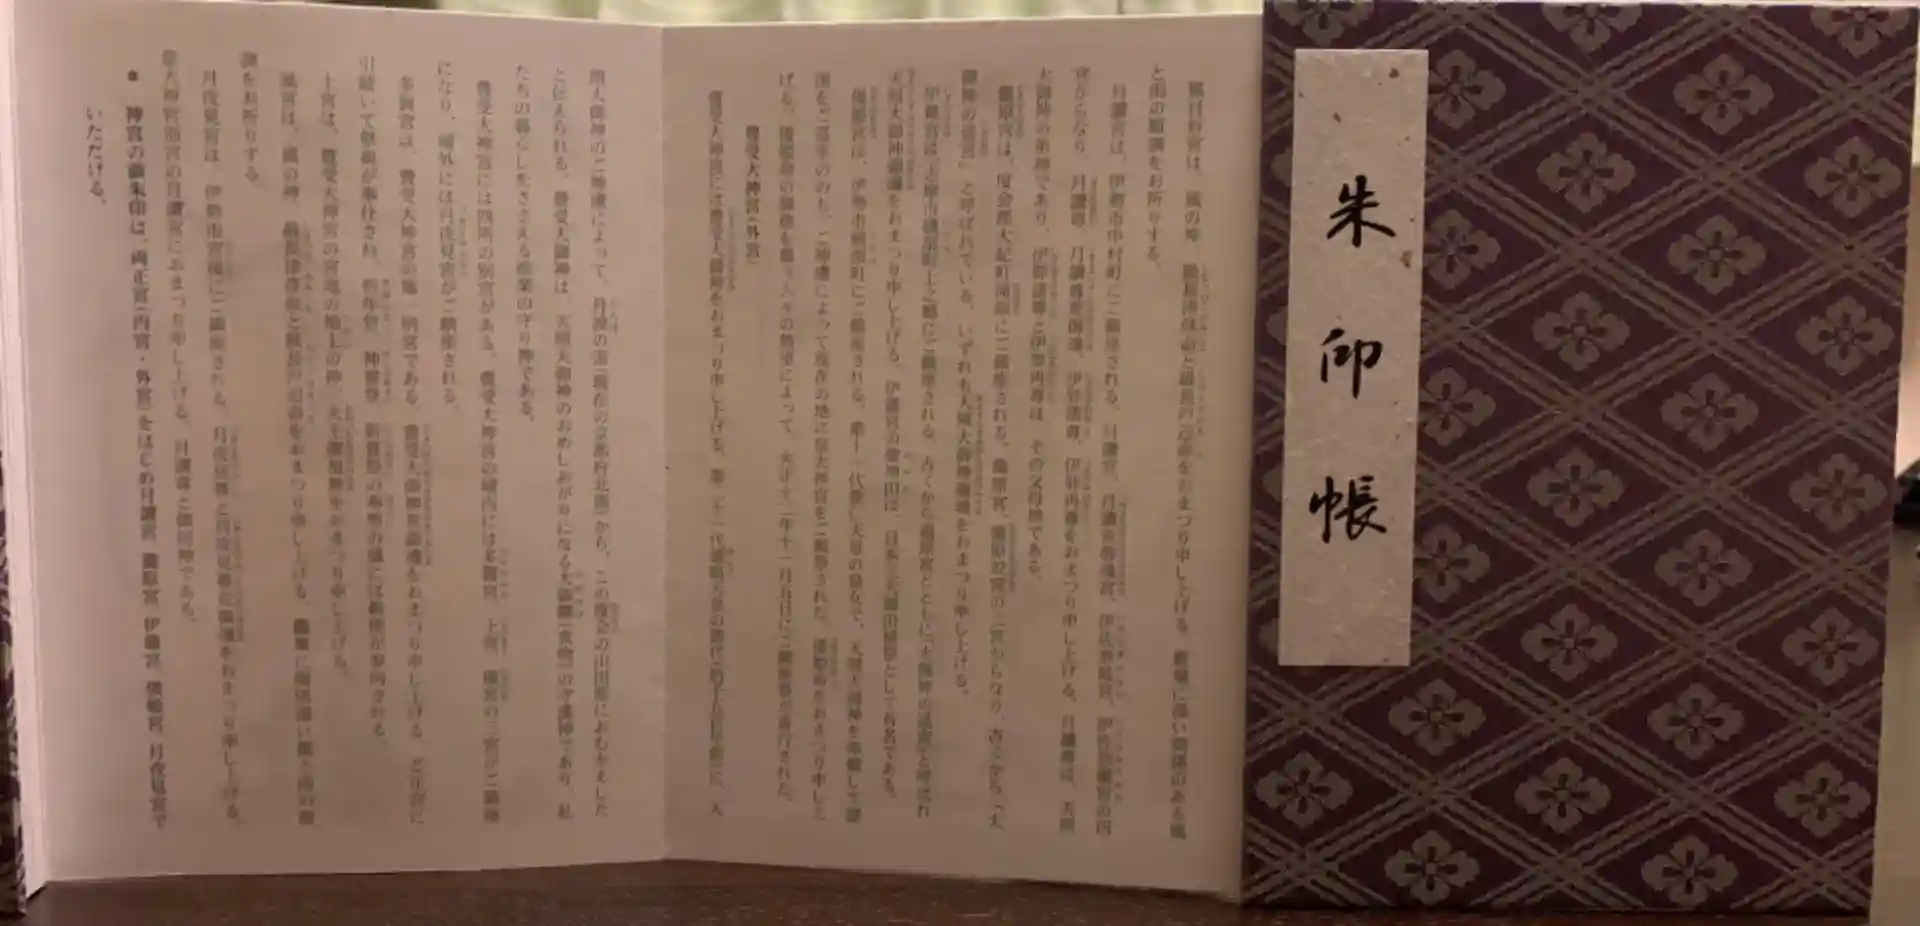 朱印帳
風日祈宮は、風の神、級長津彦命と級長戸辺命をおまつり申し上げる。農業に深い関係のある風
と雨の順調をお祈りする。
月讀宮は、伊勢市中村町にご鎮座される。月讀宮、月讀荒御魂宮、伊佐奈岐宮、伊佐奈弥宮の四
宮からなり、月讀尊、月讀尊荒御魂、伊弉諾尊、伊弉冉尊をおまつり申し上げる。月讀尊は、天照
大御神の弟神であり、伊弉諾尊と伊弉冉尊は、その父母神である。
瀧原宮は、度会郡大紀町滝原にご鎮座される。瀧原宮、瀧原竝宮の二宮からなり、古くから「大
御神の遙宮」と呼ばれている。いずれも天照大御神御魂をおまつり申し上げる。
伊雜宮は、志摩市磯部町上之郷にご鎮座される。古くから瀧原宮とともに大御神の遙宮と呼ばれ
天照大御神御魂をおまつり申し上げる。伊雜宮の御料田は、日本三大御田植祭として有名である。
倭姫宮は、伊勢市楠部町にご鎮座される。第十一代垂仁天皇の皇女で、天照大御神を奉戴して諸
国をご巡幸ののち、ご神慮によって現在の地に皇大神宮をご創祭された、倭姫命をおまつり申し上
げる。
大正十二年十一月五日にご鎮座祭が執行された。
豊受大神宮(外宮)
豊受大神宮には豊受大御神をおまつり申し上げる。第二十一代雄略天皇の御代
に、天
照大御神のご神慮によって、丹波の国(現在の京都府北部)から、この度会の山田原におむかえした
と伝えられる。豊受大御神は、天照大御神のおめしあがりになる大御饌(食物)の守護神であり、私
たちの暮らしをささえる産業の守り神である。
豊受大神宮には四所の別宮がある。豊受大神宮の域内には多賀宮、土宮、風宮の三宮がご鎮座
になり、域外には月夜見宮がご鎮座される。
多賀宮は、豊受大神宮の第一別宮である。豊受大御神荒御魂をおまつり申し上げる。ご正宮に
引続いて祭典が奉仕され、祈年祭、神嘗祭、新嘗祭の奉幣の儀には勅使が参向される。
土宮は、豊受大神宮の宮域の地主の神、大土御祖神をおまつり申し上げる。
風宮は、風の神、級長津彦命と級長戸辺命をおまつり申し上げる。農業に関係深い風と雨の順
調をお祈りする。
月夜見宮は、伊勢市宮後にご鎮座される。月夜見尊と月夜見尊荒御魂をおまつり申し上げる。
皇大神宮別宮の月讀宮におまつり申し上げる、月讀尊と御同神である。
● 神宮の御朱印は、両正宮(内宮・外宮)をはじめ月讀宮、瀧原宮、伊雜宮、倭姫宮、月夜見宮で
いただける。